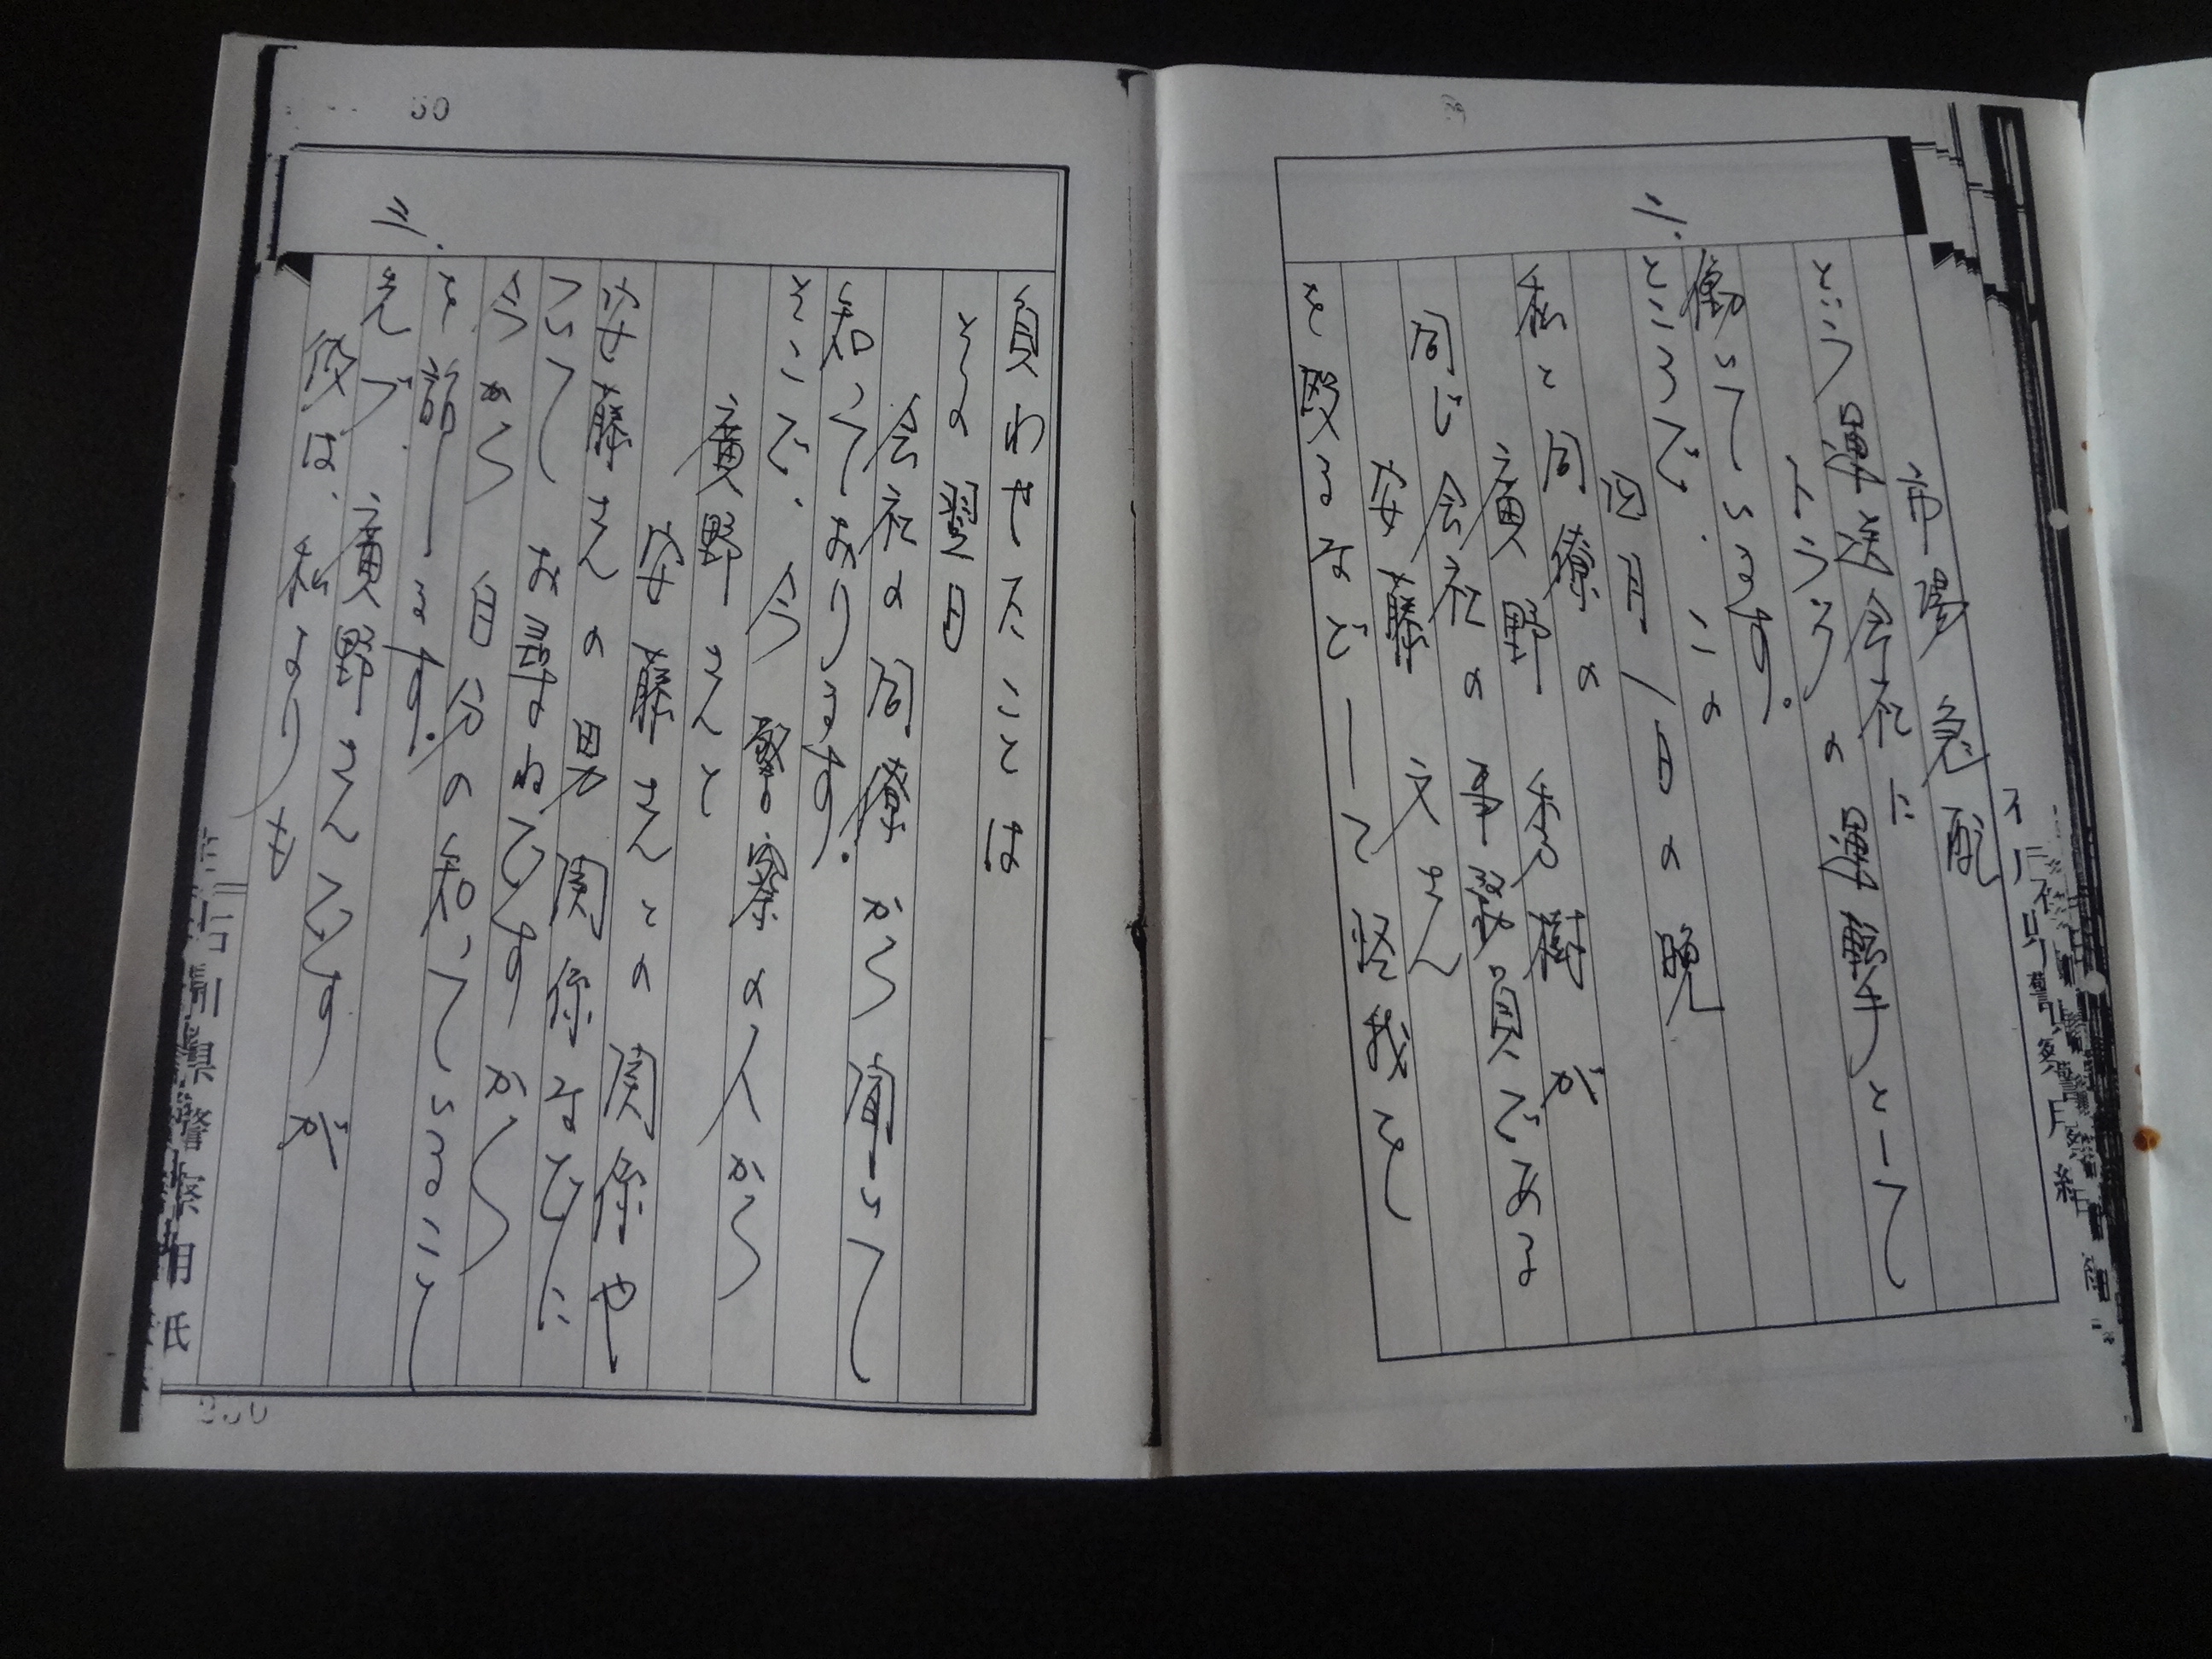 市場急配
という運送会社に
トラックの運転手として
働いています。
二.
ところで、この
四月一日の晩
私と同僚の
廣野秀樹が
同じ会社の事務員である
安藤文さん
を殴るなどして怪我を
負わせたことは
その翌日
会社の同僚から聞いて
知っております。
そこで、今警察の人から
廣野さんと
安藤さんとの関係や
安藤さんの男関係などに
ついてお尋ねですから
今から自分の知っていること
を話します。
三.
先づ、廣野さんですが
彼は、私よりも
石川県警察
50